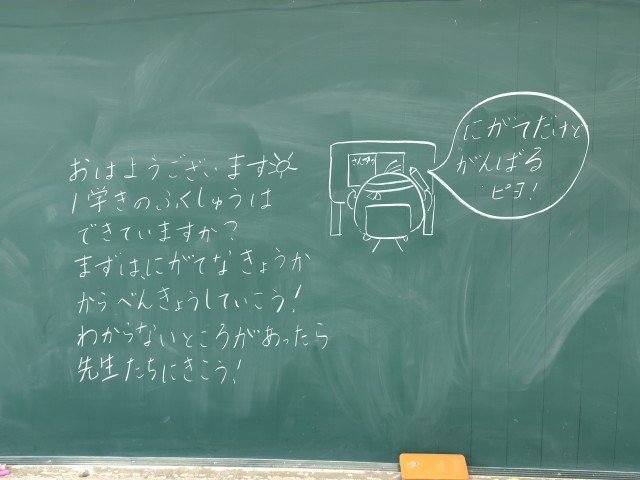 おはようございます
1学きのふくしゅうは
できていますか?
まずは、にがてなきょうか
からべんきょうしていこう!
わからないところがあったら
先生たちにきこう!
にがてだけど
がんばる
ピヨ!
さんすう